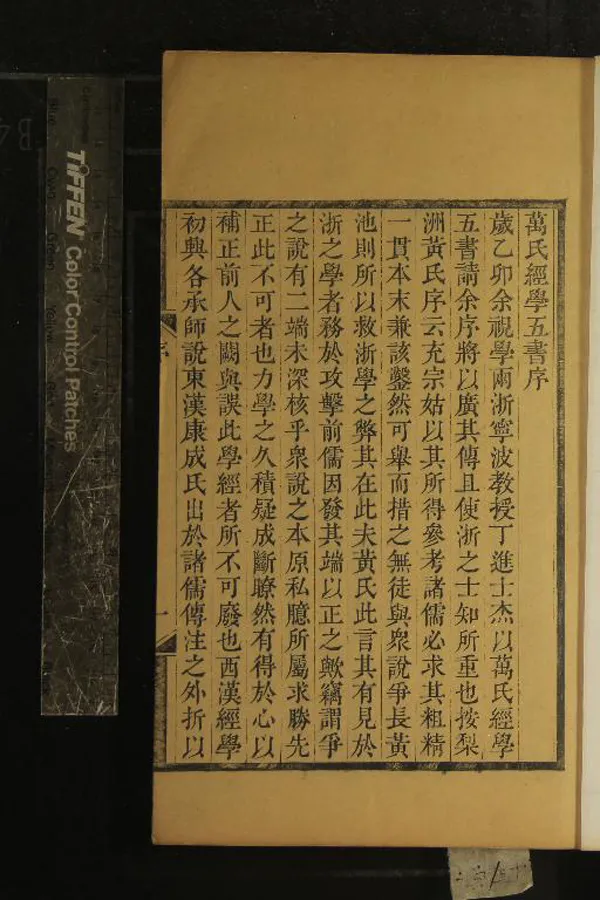 萬氏經學五書序
歲乙卯余視學兩浙寧波教授丁進士杰以萬氏經學
五書請余序將以廣其傳且使浙之士知所重也按梨
洲黃氏序云充宗姑以其所得參考諸儒必求其粗精
一貫本末兼該鑿然可舉而措之無徒與衆說爭長黃
池則所以救浙學之弊其在此夫黃氏此言其有見於
浙之學者務於攻擊前儒因發其端以正之歟竊謂爭
之說有二端未深核乎衆說之本原私臆所屬求勝先
正此不可者也力學之久積疑成斷瞭然有得於心以
補正前人之闕與誤此學經者所不可廢也西漢經學
初興各承師說東漢康成氏出於諸儒傳注之外折以
序
一
TIFFEN Color Control Patches